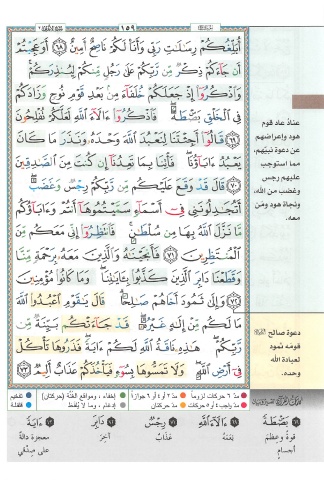 ١٥٩
أُبَلِّغُكُمْ رِسَٰلَٰتِ رَبِّى وَأَنَا۠ لَكُمْ نَاصِحٌ أَمِينٌ ٦٨ أَوَعَجِبْتُمْ
أَن جَآءَكُمْ ذِكْرٌ مِّن رَّبِّكُمْ عَلَىٰ رَجُلٍ مِّنكُمْ لِيُنذِرَكُمْ
وَٱذْكُرُوٓا۟ إِذْ جَعَلَكُمْ خُلَفَآءَ مِنۢ بَعْدِ قَوْمِ نُوحٍ وَزَادَكُمْ
فِى ٱلْخَلْقِ بَصْۜطَةً فَٱذْكُرُوٓا۟ ءَالَآءَ ٱللَّهِ لَعَلَّكُمْ تُفْلِحُونَ
٦٩ قَالُوٓا۟ أَجِئْتَنَا لِنَعْبُدَ ٱللَّهَ وَحْدَهُۥ وَنَذَرَ مَا كَانَ
يَعْبُدُ ءَابَآؤُنَا فَأْتِنَا بِمَا تَعِدُنَآ إِن كُنتَ مِنَ ٱلصَّٰدِقِينَ
٧٠ قَالَ قَدْ وَقَعَ عَلَيْكُم مِّن رَّبِّكُمْ رِجْسٌ وَغَضَبٌ
أَتُجَٰدِلُونَنِى فِىٓ أَسْمَآءٍ سَمَّيْتُمُوهَآ أَنتُمْ وَءَابَآؤُكُم
مَّا نَزَّلَ ٱللَّهُ بِهَا مِن سُلْطَٰنٍ فَٱنتَظِرُوٓا۟ إِنِّى مَعَكُم مِّنَ
ٱلْمُنتَظِرِينَ ٧١ فَأَنجَيْنَٰهُ وَٱلَّذِينَ مَعَهُۥ بِرَحْمَةٍ مِّنَّا
وَقَطَعْنَا دَابِرَ ٱلَّذِينَ كَذَّبُوا۟ بِـَٔايَٰتِنَا وَمَا كَانُوا۟ مُؤْمِنِينَ
٧٢ وَإِلَىٰ ثَمُودَ أَخَاهُمْ صَٰلِحًا قَالَ يَٰقَوْمِ ٱعْبُدُوا۟ ٱللَّهَ
مَا لَكُم مِّنْ إِلَٰهٍ غَيْرُهُۥ قَدْ جَآءَتْكُم بَيِّنَةٌ مِّن
رَّبِّكُمْ هَٰذِهِۦ نَاقَةُ ٱللَّهِ لَكُمْ ءَايَةً فَذَرُوهَا تَأْكُلْ
فِىٓ أَرْضِ ٱللَّهِ وَلَا تَمَسُّوهَا بِسُوٓءٍ فَيَأْخُذَكُمْ عَذَابٌ أَلِيمٌ ٧٣
عناد عاد قوم
هود وإعراضهم
عن دعوة نبيّهم،
مما استوجب
عليهم رجس
وغضب من الله،
ونجاة هود ومَن
معه.
دعوة صالح
قومَه ثمود
لعبادة الله
وحده.
مدّ ٦ حركات لزوماً مدّ ٢ أو ٤ أو ٦ جوازاً إخفاء، ومواقع الغُنَّة (حركتان) تفخيم
مدّ واجب ٤ أو ٥ حركات مدّ حركتان إدغام، وما لا يُلفَظ قلقلة
٦٩ بَصْۜطَةً ٦٩ ءَالَآءَ ٱللَّهِ ٧١ رِجْسٌ ٧٢ دَابِرَ ٧٣ ءَايَةً
قوةً وعِظَمَ نِعَمَهُ عَذَابٌ آخِرَ معجزة دالّة
أجسامٍ على صِدْقي